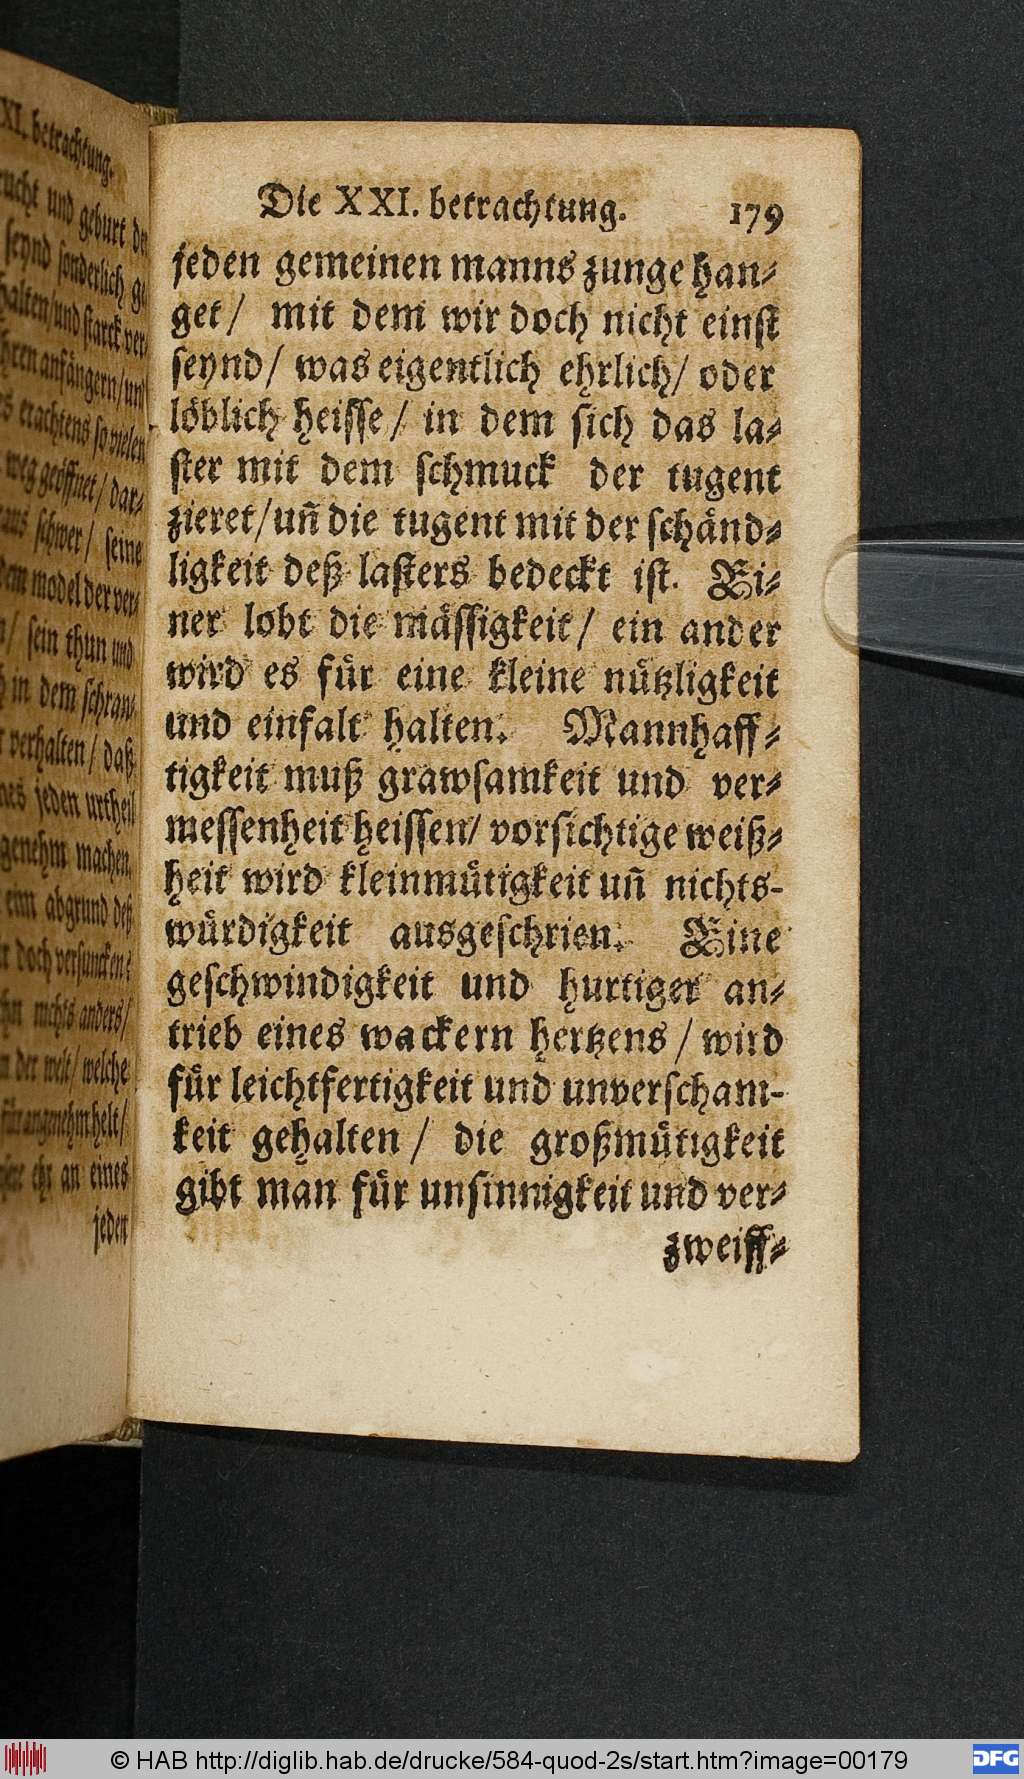 XI. betrachtung.
rucht und geburt de
seynd sonderlich ge
halten/und starck ver-
hren anfängern/und
erachtens so vielen
weg geöffnet/ dar-
schwer/ seine
dem model der ver-
sein thun und
in dem schran-
verhalten/ daß
nes jeden urtheil
genehm machen.
ein abgrund deß
doch versuncken?
nichts anders/
der welt/ welche
für angenehm helt/
ehr an eines
jeden
Die XXI. betrachtung. 179
jeden gemeinen manns zunge han-
get/ mit dem wir doch nicht einst
seynd/ was eigentlich ehrlich/ oder
löblich heisse/ in dem sich das la-
ster mit dem schmuck der tugent
zieret/un̄ die tugent mit der schänd-
ligkeit deß lasters bedeckt ist. Ei-
ner lobt die mässigkeit/ ein ander
wird es für eine kleine nützligkeit
und einfalt halten. Mannhaff-
tigkeit muß grawsamkeit und ver-
messenheit heissen/ vorsichtige weiß-
heit wird kleinmütigkeit un̄ nichts-
würdigkeit ausgeschrien. Eine
geschwindigkeit und hurtiger an-
trieb eines wackern hertzens/ wird
für leichtfertigkeit und unverscham-
keit gehalten/ die großmütigkeit
gibt man für unsinnigkeit und ver-
zweiff-
© HAB http://diglib.hab.de/drucke/584-quod-2s/start.htm?image=00179
DFG